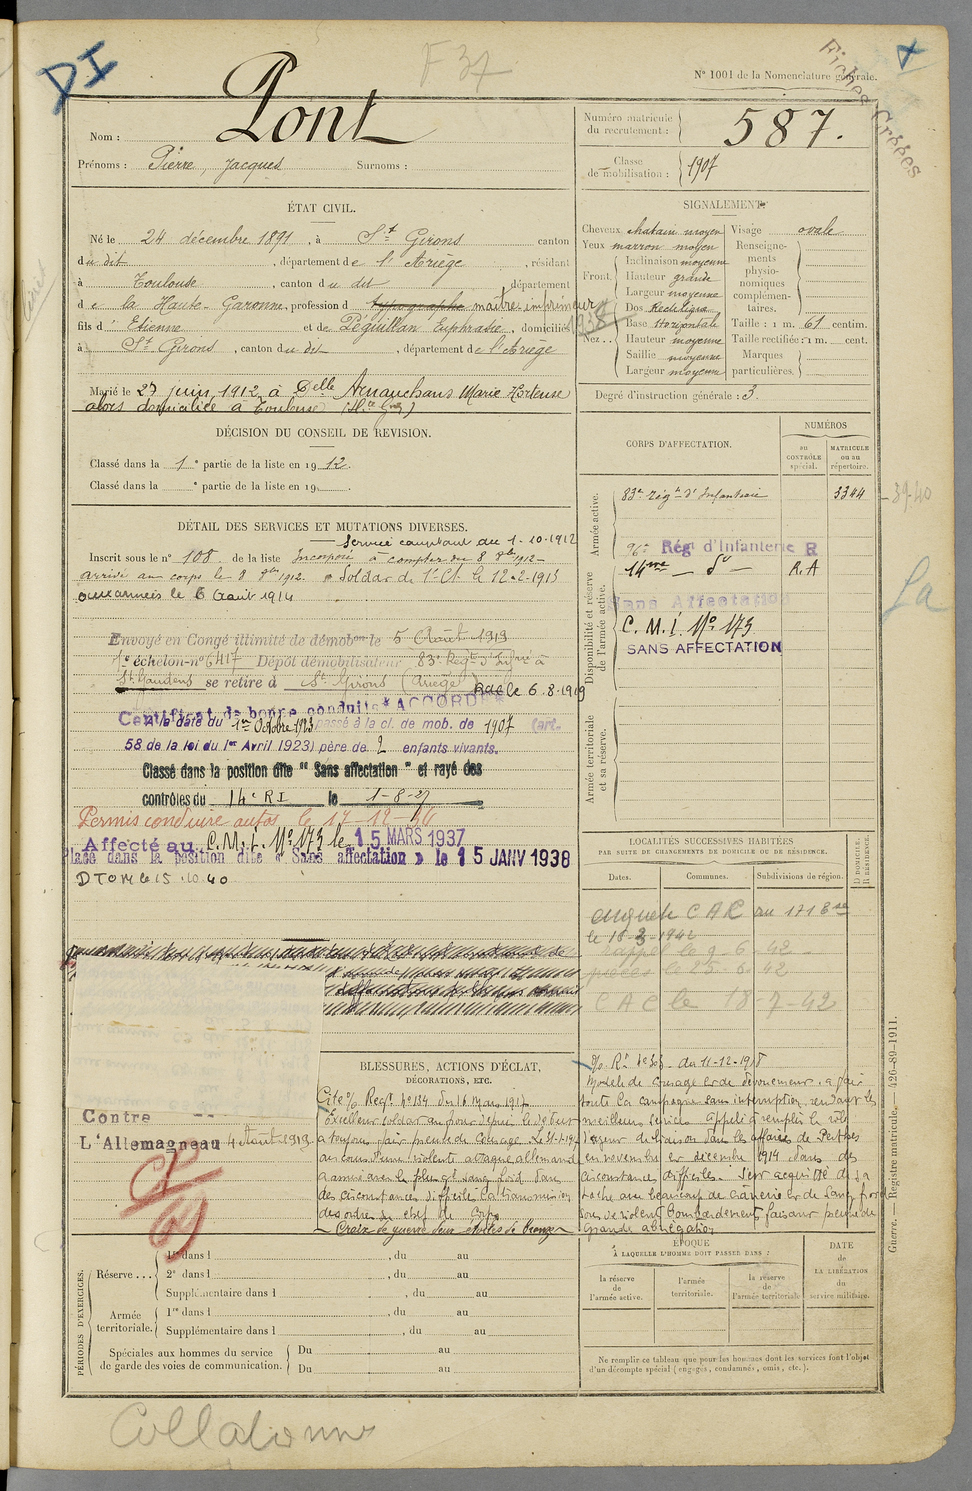 DI
F 37
N° 1001 de la Nomenclature générale.
Fiches Créées
Nom : Pont
Prénoms : Pierre, Jacques Surnoms :
Numéro matricule du recrutement : 587.
Classe de mobilisation : 1907
ÉTAT CIVIL.
Né le 24 décembre 1891, à St Girons canton
du dit, département de l'Ariège, résidant
à Toulouse, canton du dit département
de la Haute-Garonne, profession de typographe maître imprimeur
fils d'Etienne et de Péguillan Euphrasie, domiciliés
à St Girons, canton du dit, département de l'Ariège
Marié le 27 juin 1912 à Delle Marie Hortense
alors domiciliée à Toulouse (Hte Gne)
SIGNALEMENT.
Cheveux chatain moyen Visage ovale
Yeux marron moyen
Front. Inclinaison moyenne
Hauteur grande
Largeur moyenne
Nez.. Dos Rectiligne
Base Horizontale
Hauteur moyenne
Saillie moyenne
Largeur moyenne
Renseignements physionomiques complémentaires.
Taille : 1 m. 61 centim.
Taille rectifiée : 1 m. cent.
Marques particulières.
Degré d'instruction générale : 3.
DÉCISION DU CONSEIL DE REVISION.
Classé dans la 1e partie de la liste en 1912.
Classé dans la e partie de la liste en 19 .
CORPS D'AFFECTATION.
NUMÉROS
au CONTRÔLE spécial.
MATRICULE ou au répertoire.
Armée active.
83e Régt d'Infanterie 3344
Disponibilité et réserve de l'armée active.
96e Rég. d'Infanterie R
14me — do — R.A
Sans Affectation
C.M.I. No 173
SANS AFFECTATION
Armée territoriale et sa réserve.
DÉTAIL DES SERVICES ET MUTATIONS DIVERSES.
Service comptant du 1-10-1912
Inscrit sous le n° 108 de la liste Incorporé à compter du 8 8bre 1912
arrivé au corps le 8 8bre 1912. Soldat de 1e Cl. le 12-2-1913
aux armées le 6 août 1914
Envoyé en Congé illimité de démobon le 5 Août 1919
1e échelon n° 6417 Dépôt démobilisateur 83e Régt d'Infrie à
St Gaudens se retire à St Girons (Ariège) le 6.8.1919
Certificat de bonne conduite "ACCORDÉ"
A la date du 1er Octobre 1923 passé à la cl. de mob. de 1907 (art.
58 de la loi du 1er Avril 1923) père de 2 enfants vivants.
Classé dans la position dite "Sans affectation" et rayé des
contrôles du 14e RI le 1-8-27
Permis conduire autos le 17-12-
Affecté au C.M.I. No 173 le 15 MARS 1937
Placé dans la position dite « Sans affectation » le 15 JANV 1938
DTOM le 15.10.40
LOCALITÉS SUCCESSIVES HABITÉES
PAR SUITE DE CHANGEMENTS DE DOMICILE OU DE RÉSIDENCE.
Dates. Communes. Subdivisions de région. D DOMICILE. R RÉSIDENCE.
CAR au 171
le 18-3-1942
le 9-6-42
le 25-6-42
CAC le 18-7-42
BLESSURES, ACTIONS D'ÉCLAT,
DÉCORATIONS, ETC.
Cité % Regt No 134 du 16 Mars 1917
Excellent soldat au front depuis le début
a toujours fait preuve de Courage. Le
au cours d'une violente attaque allemande
a avec le plus gd sang froid dans
des circonstances difficiles la transmission
des ordres du chef de Corps
Croix de guerre deux étoiles de Bronze
du 11-12-1918
Modèle de courage et de dévouement. a fait
toute la campagne sans interruption, rendant les
meilleurs services. Appelé à remplir le rôle
d'agent de liaison dans les affaires de Perthes
en novembre et décembre 1914 dans des
circonstances difficiles. S'est acquitté de sa
tâche avec beaucoup de crânerie et de sang froid
sous de violents bombardements faisant preuve de
grande abnégation
Contre
L'Allemagne au 4 Août 1919
PÉRIODES D'EXERCICES.
Réserve ... 1re dans l , du au
2e dans l , du au
Supplémentaire dans l , du au
Armée territoriale. 1re dans l , du au
Supplémentaire dans l , du au
Spéciales aux hommes du service de garde des voies de communication. Du au
Du au
ÉPOQUE
À LAQUELLE L'HOMME DOIT PASSER DANS :
la réserve de l'armée active.
l'armée territoriale.
la réserve de l'armée territoriale
DATE de LA LIBÉRATION du service militaire.
Ne remplir ce tableau que pour les hommes dont les services font l'objet
d'un décompte spécial (engagés, condamnés, omis, etc.).
Guerre. — Registre matricule. — 426-89-1911.